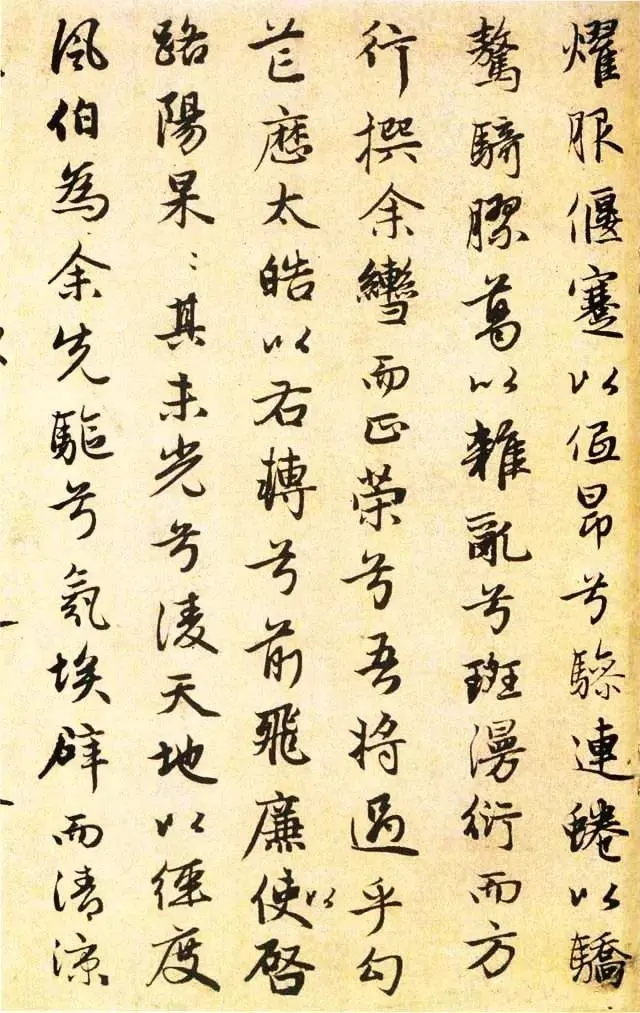 燿服偃蹇以低昂兮驂連蜷以驕
驁騎膠葛以雜亂兮斑漫衍而方
行撰余轡而正策兮吾將過乎勾
芒歷太皓以右轉兮前飛廉使以啓
路陽杲〻其未光兮淩天地以徑度
風伯為余先驅兮氛埃辟而清涼